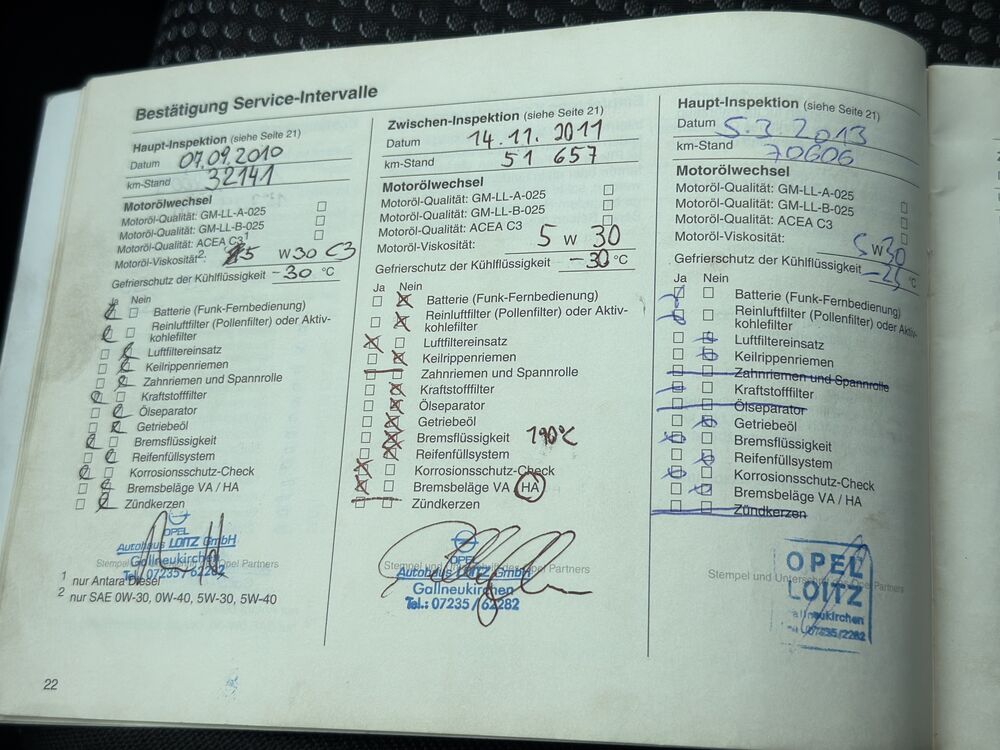 Bestätigung Service-Intervalle
Haupt-Inspektion (siehe Seite 21)
Datum 07.09.2010
km-Stand 32141
Motorölwechsel
Motoröl-Qualität: GM-LL-A-025
Motoröl-Qualität: GM-LL-B-025
Motoröl-Qualität: ACEA C3¹
Motoröl-Viskosität²: 5 W 30 C3
Gefrierschutz der Kühlflüssigkeit -30 °C
Ja Nein
Batterie (Funk-Fernbedienung)
Reinluftfilter (Pollenfilter) oder Aktiv-
kohlefilter
Luftfiltereinsatz
Keilrippenriemen
Zahnriemen und Spannrolle
Kraftstofffilter
Ölseparator
Getriebeöl
Bremsflüssigkeit
Reifenfüllsystem
Korrosionsschutz-Check
Bremsbeläge VA / HA
Zündkerzen
OPEL
Autohaus LOITZ GmbH
Gallneukirchen
Stempel Opel Partners
Tel.: 07235/62282
1 nur Antara Diesel
2 nur SAE 0W-30, 0W-40, 5W-30, 5W-40
22
Zwischen-Inspektion (siehe Seite 21)
Datum 14.11.2011
km-Stand 51 657
Motorölwechsel
Motoröl-Qualität: GM-LL-A-025
Motoröl-Qualität: GM-LL-B-025
Motoröl-Qualität: ACEA C3
Motoröl-Viskosität: 5 W 30
Gefrierschutz der Kühlflüssigkeit -30 °C
Ja Nein
Batterie (Funk-Fernbedienung)
Reinluftfilter (Pollenfilter) oder Aktiv-
kohlefilter
Luftfiltereinsatz
Keilrippenriemen
Zahnriemen und Spannrolle
Kraftstofffilter
Ölseparator
Getriebeöl
Bremsflüssigkeit 190°C
Reifenfüllsystem
Korrosionsschutz-Check
Bremsbeläge VA / HA
Zündkerzen
OPEL
Stempel und Unterschrift des Opel Partners
Autohaus LOITZ GmbH
Gallneukirchen
Tel.: 07235/62282
Haupt-Inspektion (siehe Seite 21)
Datum 5.3 2013
km-Stand 70606
Motorölwechsel
Motoröl-Qualität: GM-LL-A-025
Motoröl-Qualität: GM-LL-B-025
Motoröl-Qualität: ACEA C3
Motoröl-Viskosität: 5 W 30
Gefrierschutz der Kühlflüssigkeit -25 °C
Ja Nein
Batterie (Funk-Fernbedienung)
Reinluftfilter (Pollenfilter) oder Aktiv-
kohlefilter
Luftfiltereinsatz
Keilrippenriemen
Zahnriemen und Spannrolle
Kraftstofffilter
Ölseparator
Getriebeöl
Bremsflüssigkeit
Reifenfüllsystem
Korrosionsschutz-Check
Bremsbeläge VA / HA
Zündkerzen
Stempel und Unterschrift des Opel Partners
OPEL
LOITZ
Gallneukirchen